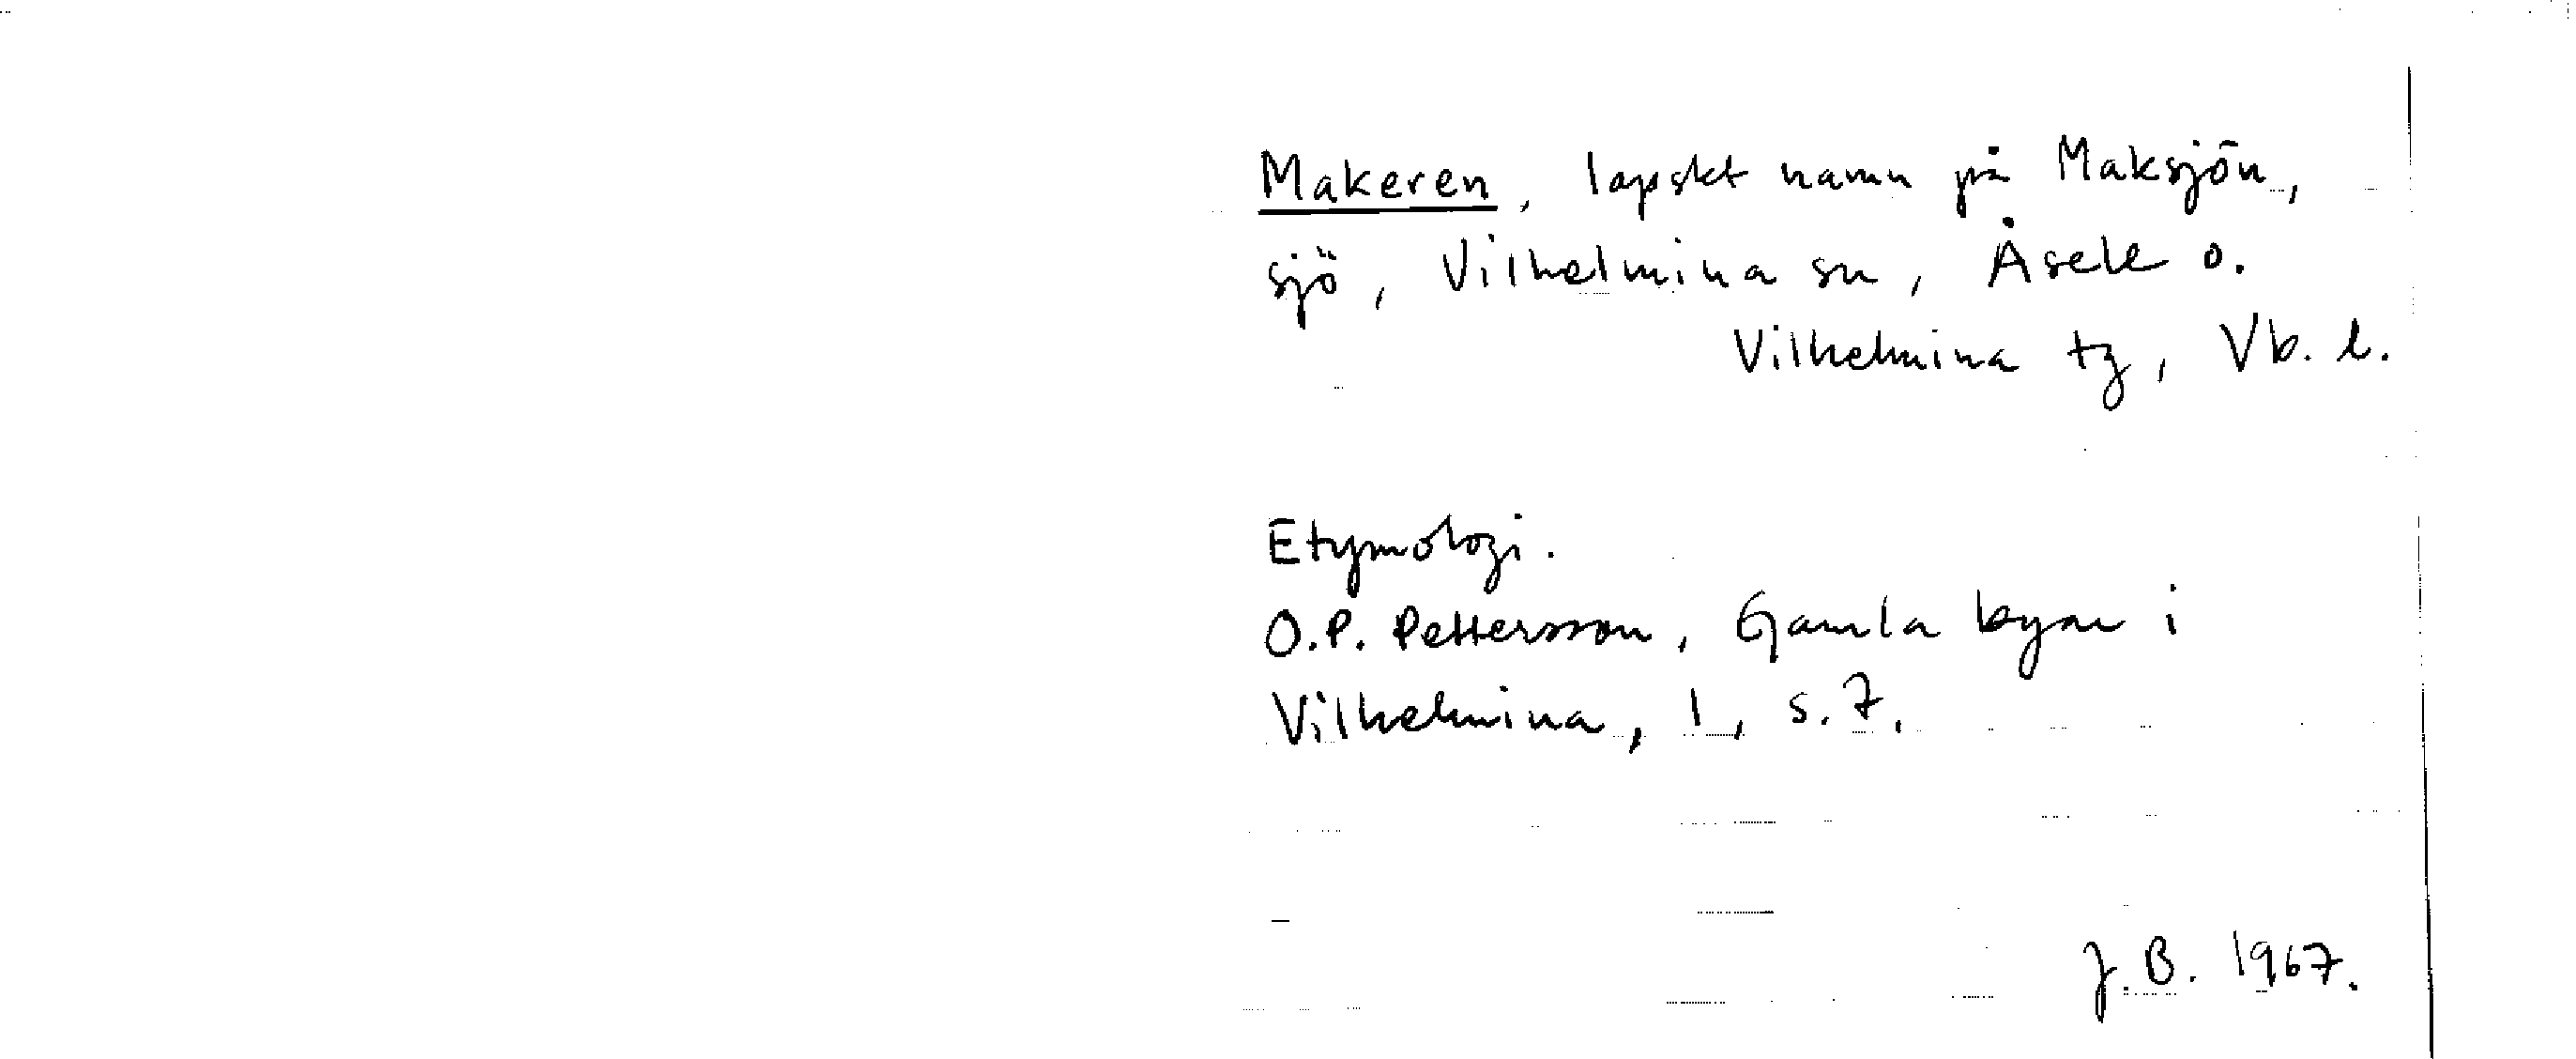 Makeren, lapskt namn på Maksjön,
sjö, Vilhelmina sn, Åsele o.
Vilhelmina tg, Vb. l.
Etymologi.
O.P. Pettersson, Gamla byar i
Vilhelmina, 1, s. 7.
J.B. 1967.